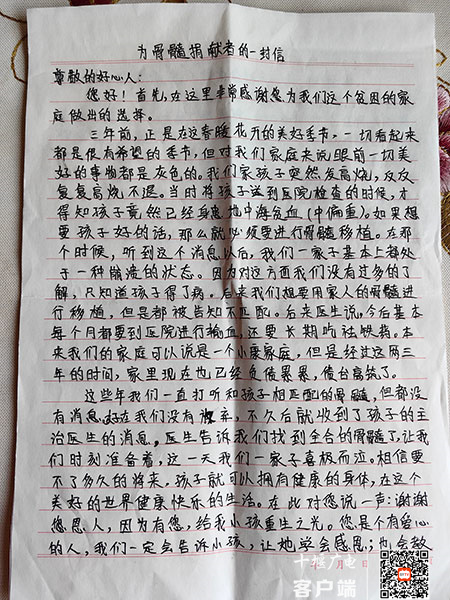 为骨髓捐献者的一封信
尊敬的好心人：
您好！首先，在这里非常感谢您为我们这个贫困的家
庭做出的选择。
三年前，正是在这春暖花开的美好季节，一切看起来
都是很有希望的季节，但对我们家庭来说眼前一切美
好的事物都是灰色的。我们家孩子突然发高烧，反反
复复高烧不退。当时将孩子送到医院检查的时候，才
得知孩子竟然已经身患地中海贫血（中偏重）。如果想
要孩子好的话，那么就必须要进行骨髓移植。在那
个时候，听到这个消息以后，我们一家子基本上都处
于一种崩溃的状态。因为对这方面我们没有过多的了
解，只知道孩子得了病。后来我们想要用家人的骨髓进
行移植，但是都被告知不匹配。后来医生说，今后基本
每个月都要到医院进行输血，还要长期吃祛铁药。本
来我们的家庭可以说是一个小康家庭，但是经过这两三
年的时间，家里现在也已经负债累累，债台高筑了。
这些年我们一直打听和孩子相匹配的骨髓，但都没
有消息。好在我们没有放弃，不久后就收到了孩子的主
治医生的消息。医生告诉我们找到全合的骨髓了，让我
们时刻准备着，这一天我们一家子喜极而泣。相信要
不了多久的将来，孩子就可以拥有健康的身体，在这个
美好的世界健康快乐的生活。在此对您说一声：谢谢
您恩人，因为有您，给我小孩重生之光。您是个有爱心
的人，我们一定会告诉小孩，让她学会感恩；也会教
十堰广电
客户端